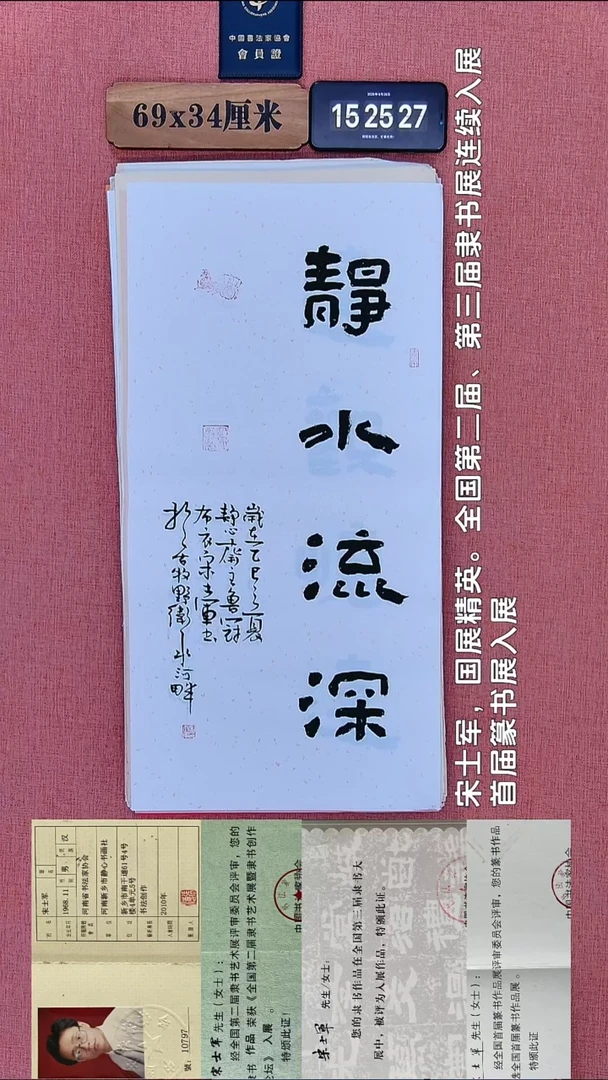 中國書法家協會
會員證
69x34厘米
15 25 27
靜水流深
歲在乙巳之夏
靜心齋主魯冠
布衣宋士軍書
於古牧野衛水河畔
宋士军，国展精英。全国第二届、第三届隶书展连续入展
首届篆书展入展
宋士军
1968.11
男
汉
河南省书法家协会
河南新乡市静心书画社
新乡市南干道61号4号
楼4单元5号
书法创作
2010年
號：10797
宋士军 先生（女士）：
经全国第二届隶书艺术展评审委员会评审，您的
隶书 作品 荣获《全国第二届隶书艺术展暨隶书创作
论坛》 入展 。
特颁此证！
宋士军 先生/女士：
您的隶书作品在全国第三届隶书大
展中，被评为入展作品，特颁此证。
士军 先生（女士）：
经全国首届篆书作品展评审委员会评审，您的篆书作品
选全国首届篆书作品展。
特颁此证